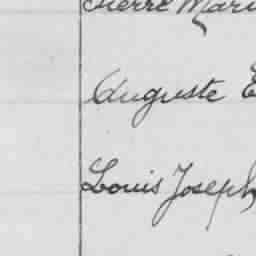 Pierre Mari
Auguste E
Louis Joseph